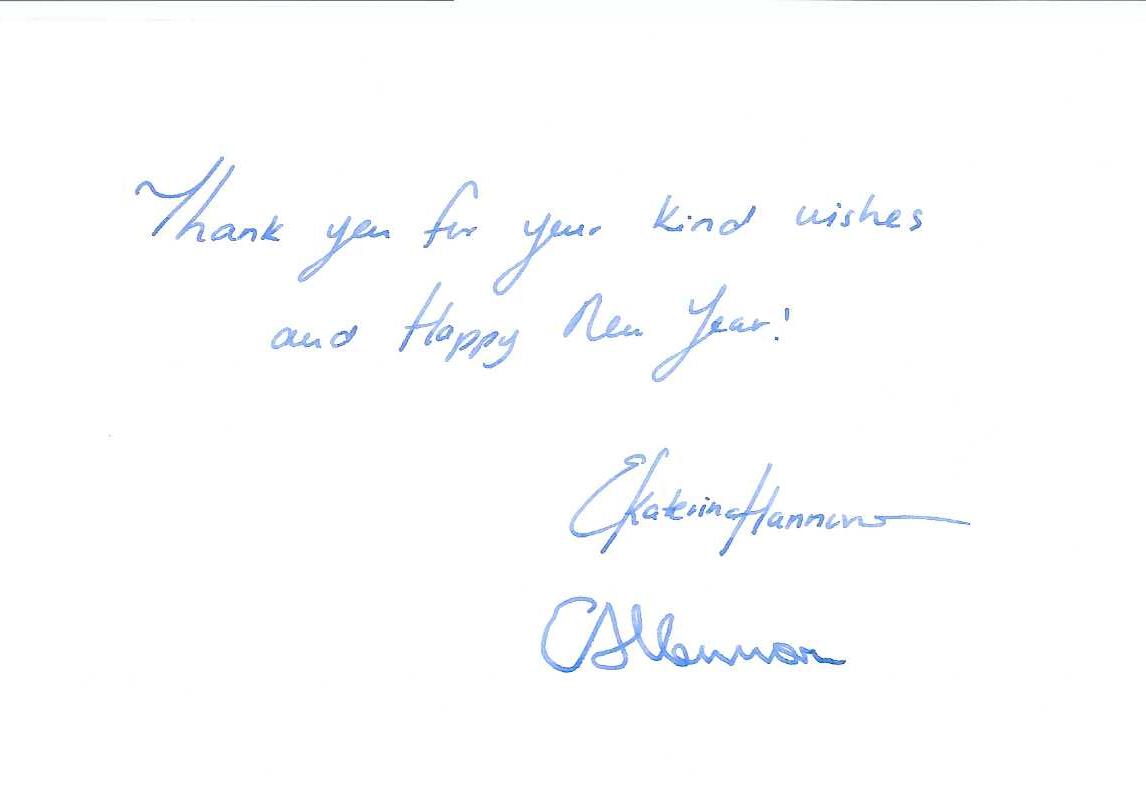 Thank you for your kind wishes
and Happy New Year!
Ekaterina Hannon